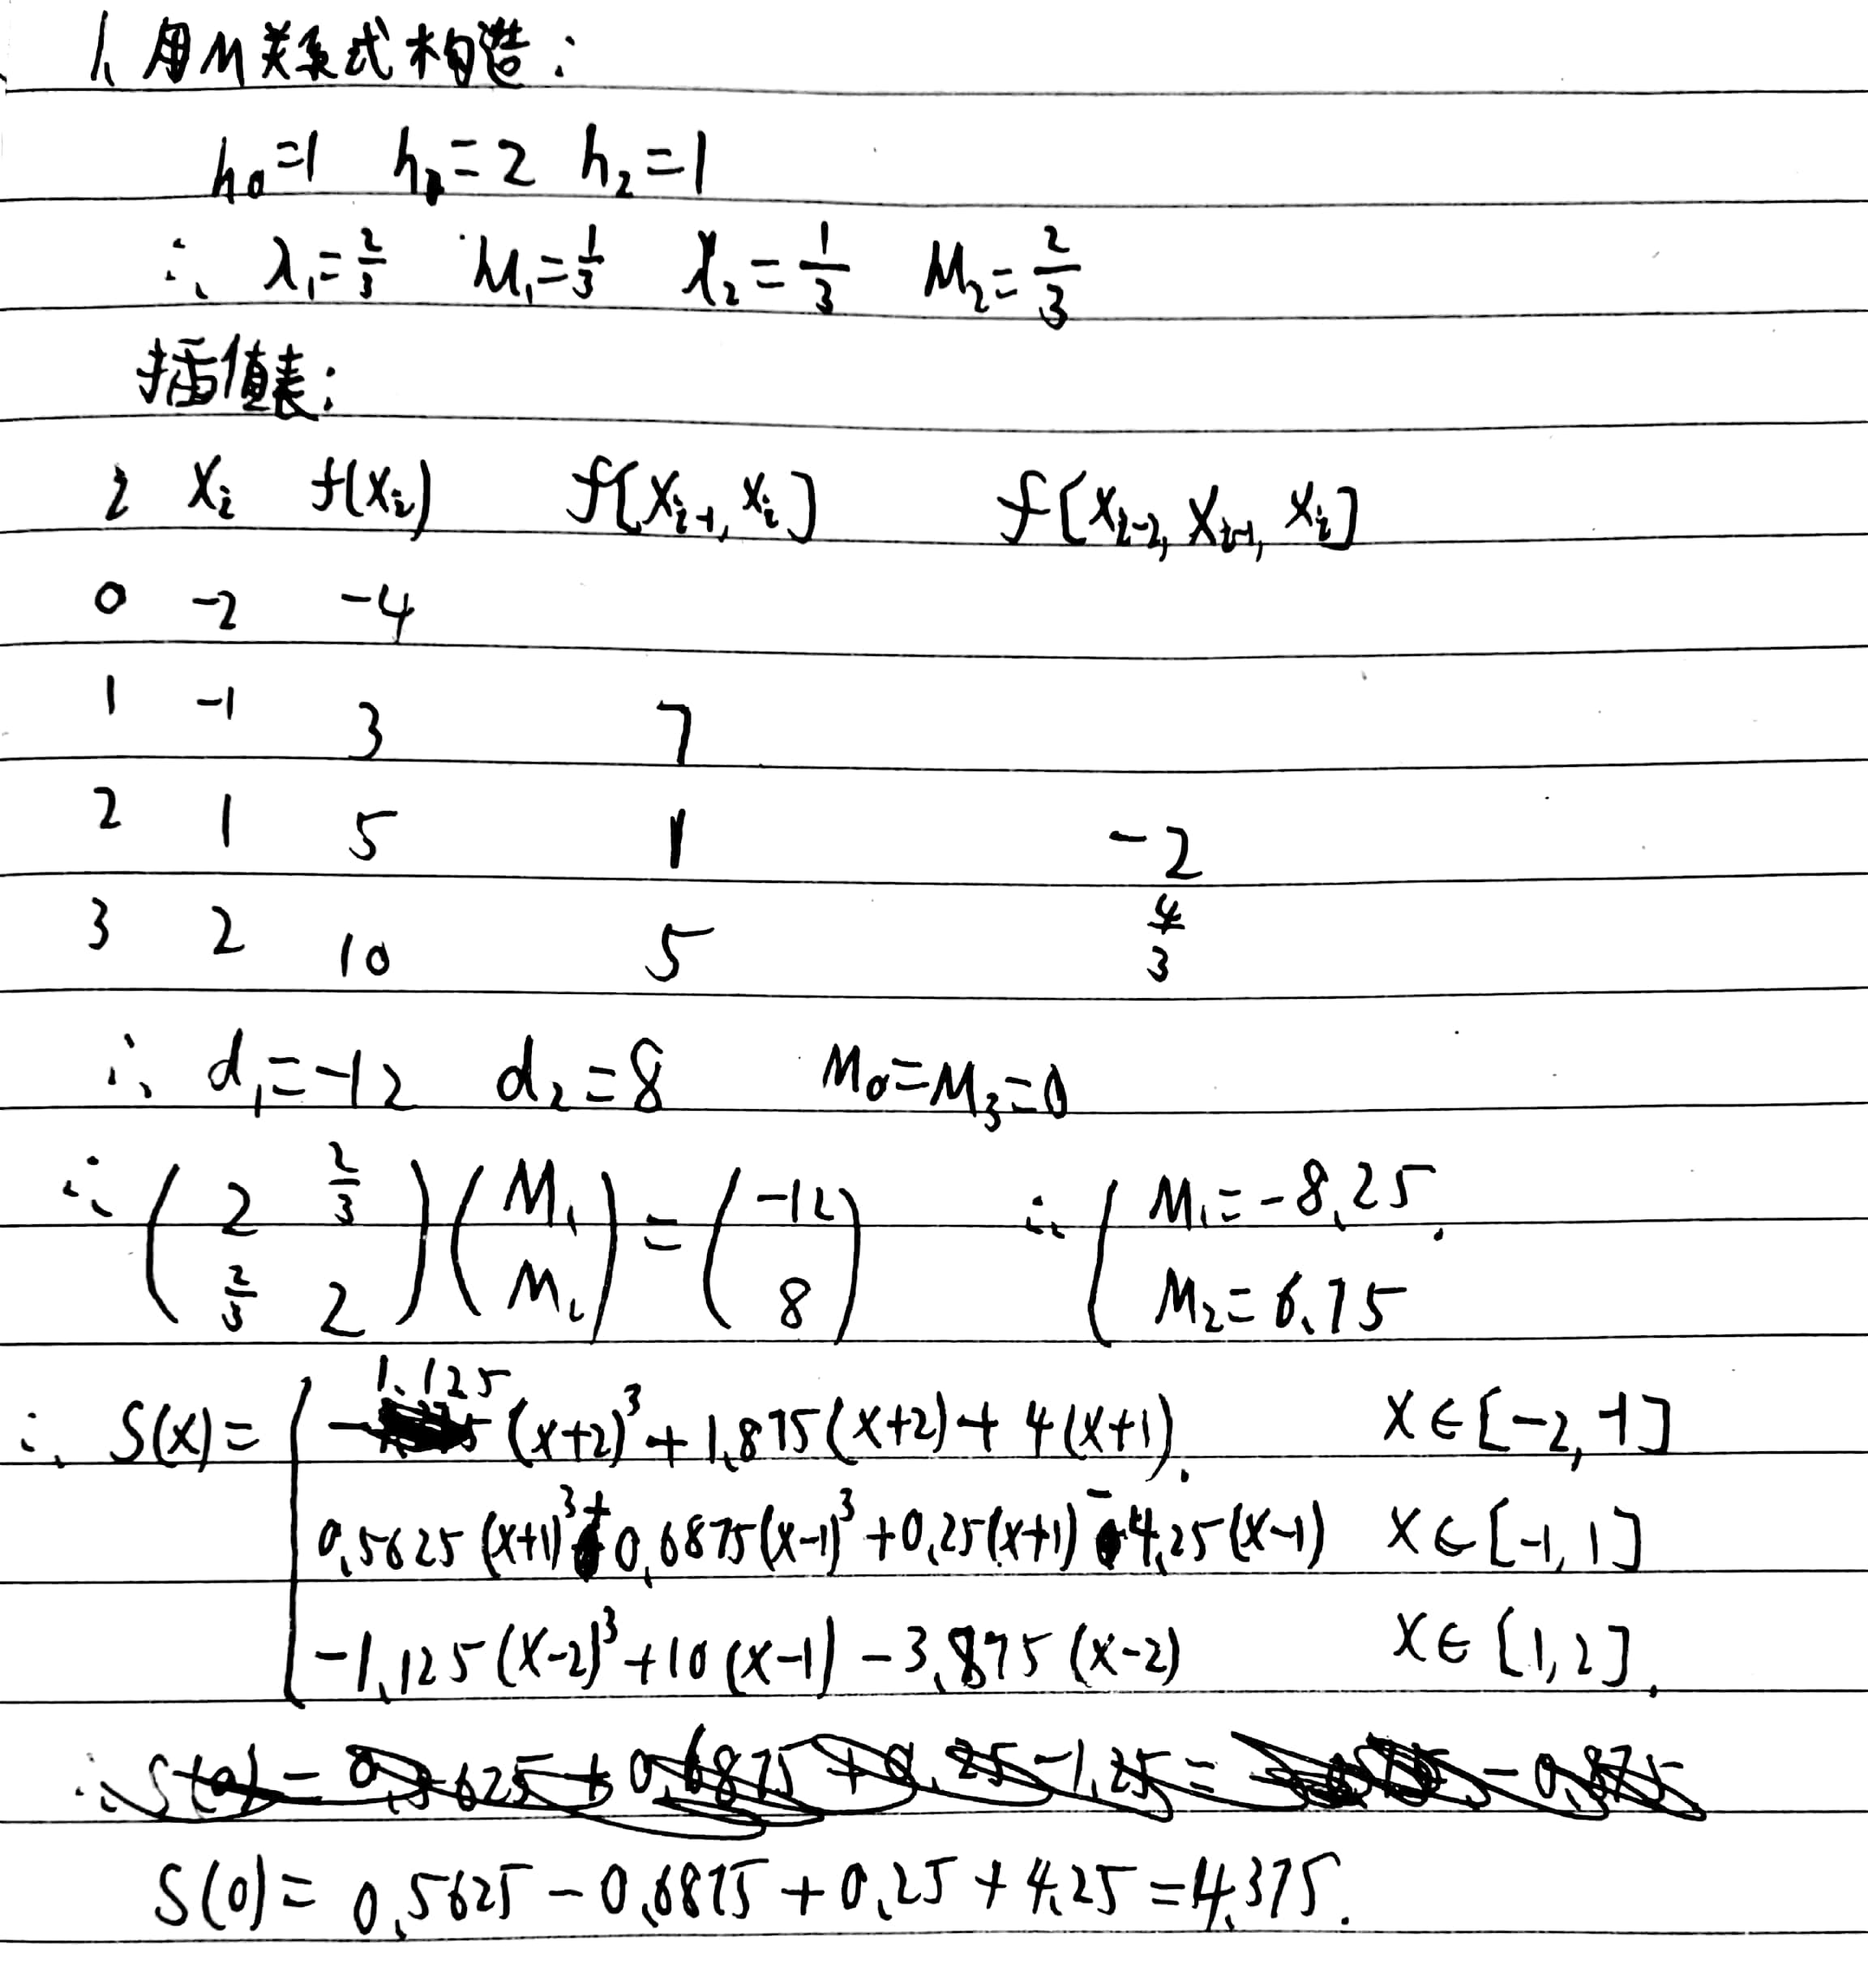 1、用M关系式构造：
h₀=1 h₁=2 h₂=1
∴ λ₁=2/3 μ₁=1/3 λ₂=1/3 μ₂=2/3
插值表：
i xᵢ f(xᵢ) f[xᵢ₋₁, xᵢ] f[xᵢ₋₂, xᵢ₋₁, xᵢ]
0 -2 -4
1 -1 3 7
2 1 5 1 -2
3 2 10 5 4/3
∴ d₁=-12 d₂=8 M₀=M₃=0
∴ (2 2/3; 2/3 2)(M₁; M₂)=(-12; 8) ∴ { M₁=-8.25. M₂=6.75
∴ S(x)= { -1.125(x+2)³+1.875(x+2)+4(x+1). x∈[-2,-1]
0.5625(x+1)³+0.6875(x-1)³+0.25(x+1)-4.25(x-1) x∈[-1,1]
-1.125(x-2)³+10(x-1)-3.875(x-2) x∈[1,2].
S(0)=0.5625-0.6875+0.25+4.25=4.375.